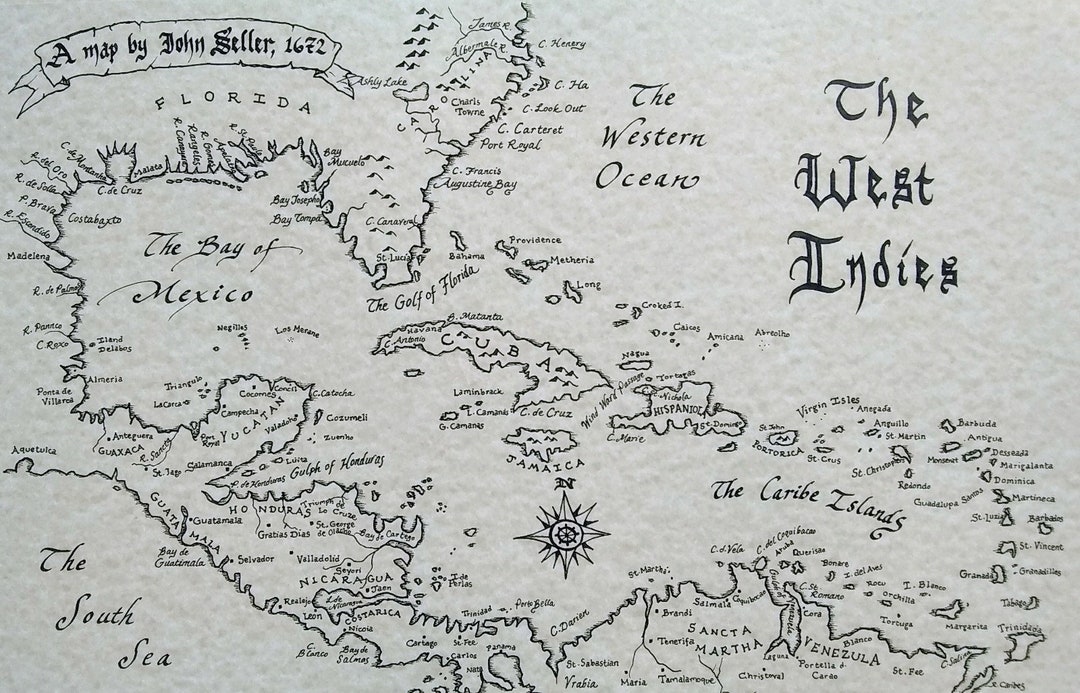 A map by John Seller, 1672
The
West
Indies
The
Western
Ocean
FLORIDA
CAROLINA
James R.
Albermale R.
C. Henery
Ashly Lake
C. Ha
Charls
Towne
C. Look Out
C. Carteret
Port Royal
C. Francis
Augustine Bay
C. Canaveral
St. Lucia
Bay
Mucuelo
Bay Josepho
Bay Tompa
Malata
C. de Cruz
R. del Oro
R. de Solla
P. Brava
Costabaxto
R. Escondido
Madelena
R. de Palma
R. Panico
C. Roxo
Iland
Delabos
The Bay of
Mexico
The Golf of Florida
Bahama
Providence
Metheria
Long
Croked I.
Caicos
Amicana
Abreolho
B. Matanta
Havana
C. Antonio
CUBA
C. de Cruz
Negillos
Los Merane
Almeria
Ponta de
Villaroa
Triangulo
LaCarca
Cocomes
Concil
C. Catocha
Campecha
YUCATAN
Valadoho
Cozumeli
Zuenho
Port
Royal
Laminbrack
L. Camanis
G. Camanas
Nagua
Tortugas
Wind Word Passage
St. Nichola
HISPANIOLA
St. Domingo
C. Marie
JAMAICA
Virgin Isles
Anegada
St. John
PORTORICA
St. Crus
Anguillo
St Martin
St. Christophers
Barbuda
Antigua
Monserat
Desseada
Marigalanta
Redondo
Dominica
Guadalupa
Santos
Martineca
St. Luzia
Barbados
St. Vincent
Granada
Granadilles
Tabago
Trinidada
Margarita
The Caribe Islands
Aquetulca
Anteguera
GUAXACA
R. Sancta
St. Jago
Calamanca
Luita
Gulph of Honduras
P. de Honduras
HONDURAS
Triumph de
Lo Cruze
GUATAMALA
Guatamala
Gratias Dias
St. George
de Olacho
Bay de Cartego
Bay de
Guatimala
Selvador
Valladolid
Seyori
NICARAGUA
Jaen
I. de
Perlas
L. de
Nicaragua
Realejo
Leon
COSTARICA
Nicoia
C.
Blanco
Bay de
Salmos
Cartago
St. Fee
Carlos
Trinidad
Porto Bella
Panama
Nata
N
The
South
Sea
C. Darien
St. Sebastian
Vrabia
St. Martha
Brandi
Salmala
SANCTA
MARTHA
Tenerifa
Maria
Tamalamoque
Christoval
C. d. Vela
C. del Coquibacao
Aruba
Querisao
Bonare
I. del Aves
Rotu
Orchilla
I. Blanco
Tortuga
C. St.
Romano
Cora
VENEZUELA
Blanco
Laguna
Portella d
Carao
St. Fee
C. Salina
R. Caribes